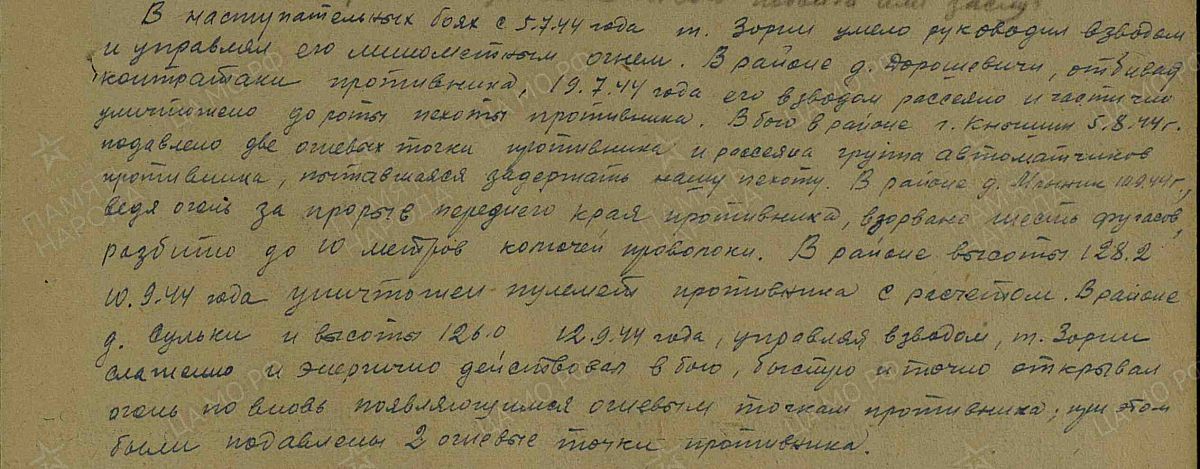 В наступательных боях с 5.7.44 года т. Зорин умело руководил взводом
и управлял его минометным огнем. В районе д. Дорошевичи, отбивая
контратаки противника, 19.7.44 года его взводом рассеяно и частично
уничтожено до роты пехоты противника. В бою в районе г. Кнышин 5.8.44 г.
подавлено две огневых точки противника и рассеяна группа автоматчиков
противника, пытавшаяся задержать нашу пехоту. В районе д. 10.9.44 г.,
ведя огонь за прорыв переднего края противника, взорвано шесть фугасов,
разбито до 10 метров колючей проволоки. В районе высоты 128.2
10.9.44 года уничтожен пулемет противника с расчетом. В районе
д. Сульки и высоты 126.0 12.9.44 года, управляя взводом, т. Зорин
слаженно и энергично действовал в бою, быстро и точно открывал
огонь по вновь появляющимся огневым точкам противника; при этом
были подавлены 2 огневые точки противника.